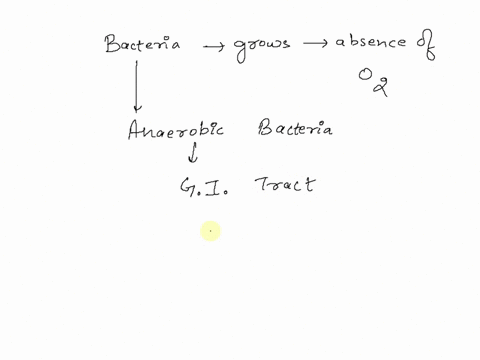 Bacteria → grows → absence of
O2
↓
Anaerobic Bacteria
↓
G.I. Tract